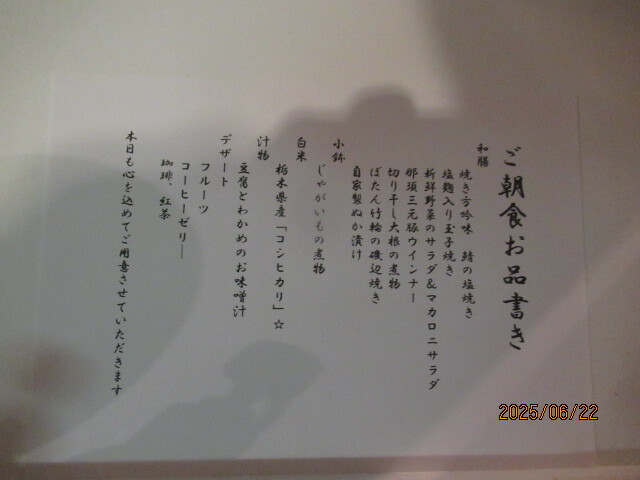 ご朝食お品書き
和膳
焼き方吟味　鯖の塩焼き
塩麹入り玉子焼き
新鮮野菜のサラダ＆マカロニサラダ
那須三元豚ウインナー
切り干し大根の煮物
ぼたん竹輪の磯辺焼き
自家製ぬか漬け
小鉢
じゃがいもの煮物
白米
栃木県産「コシヒカリ」☆
汁物
豆腐とわかめのお味噌汁
デザート
フルーツ
コーヒーゼリー
珈琲、紅茶
本日も心を込めてご用意させていただきます
2025/06/22